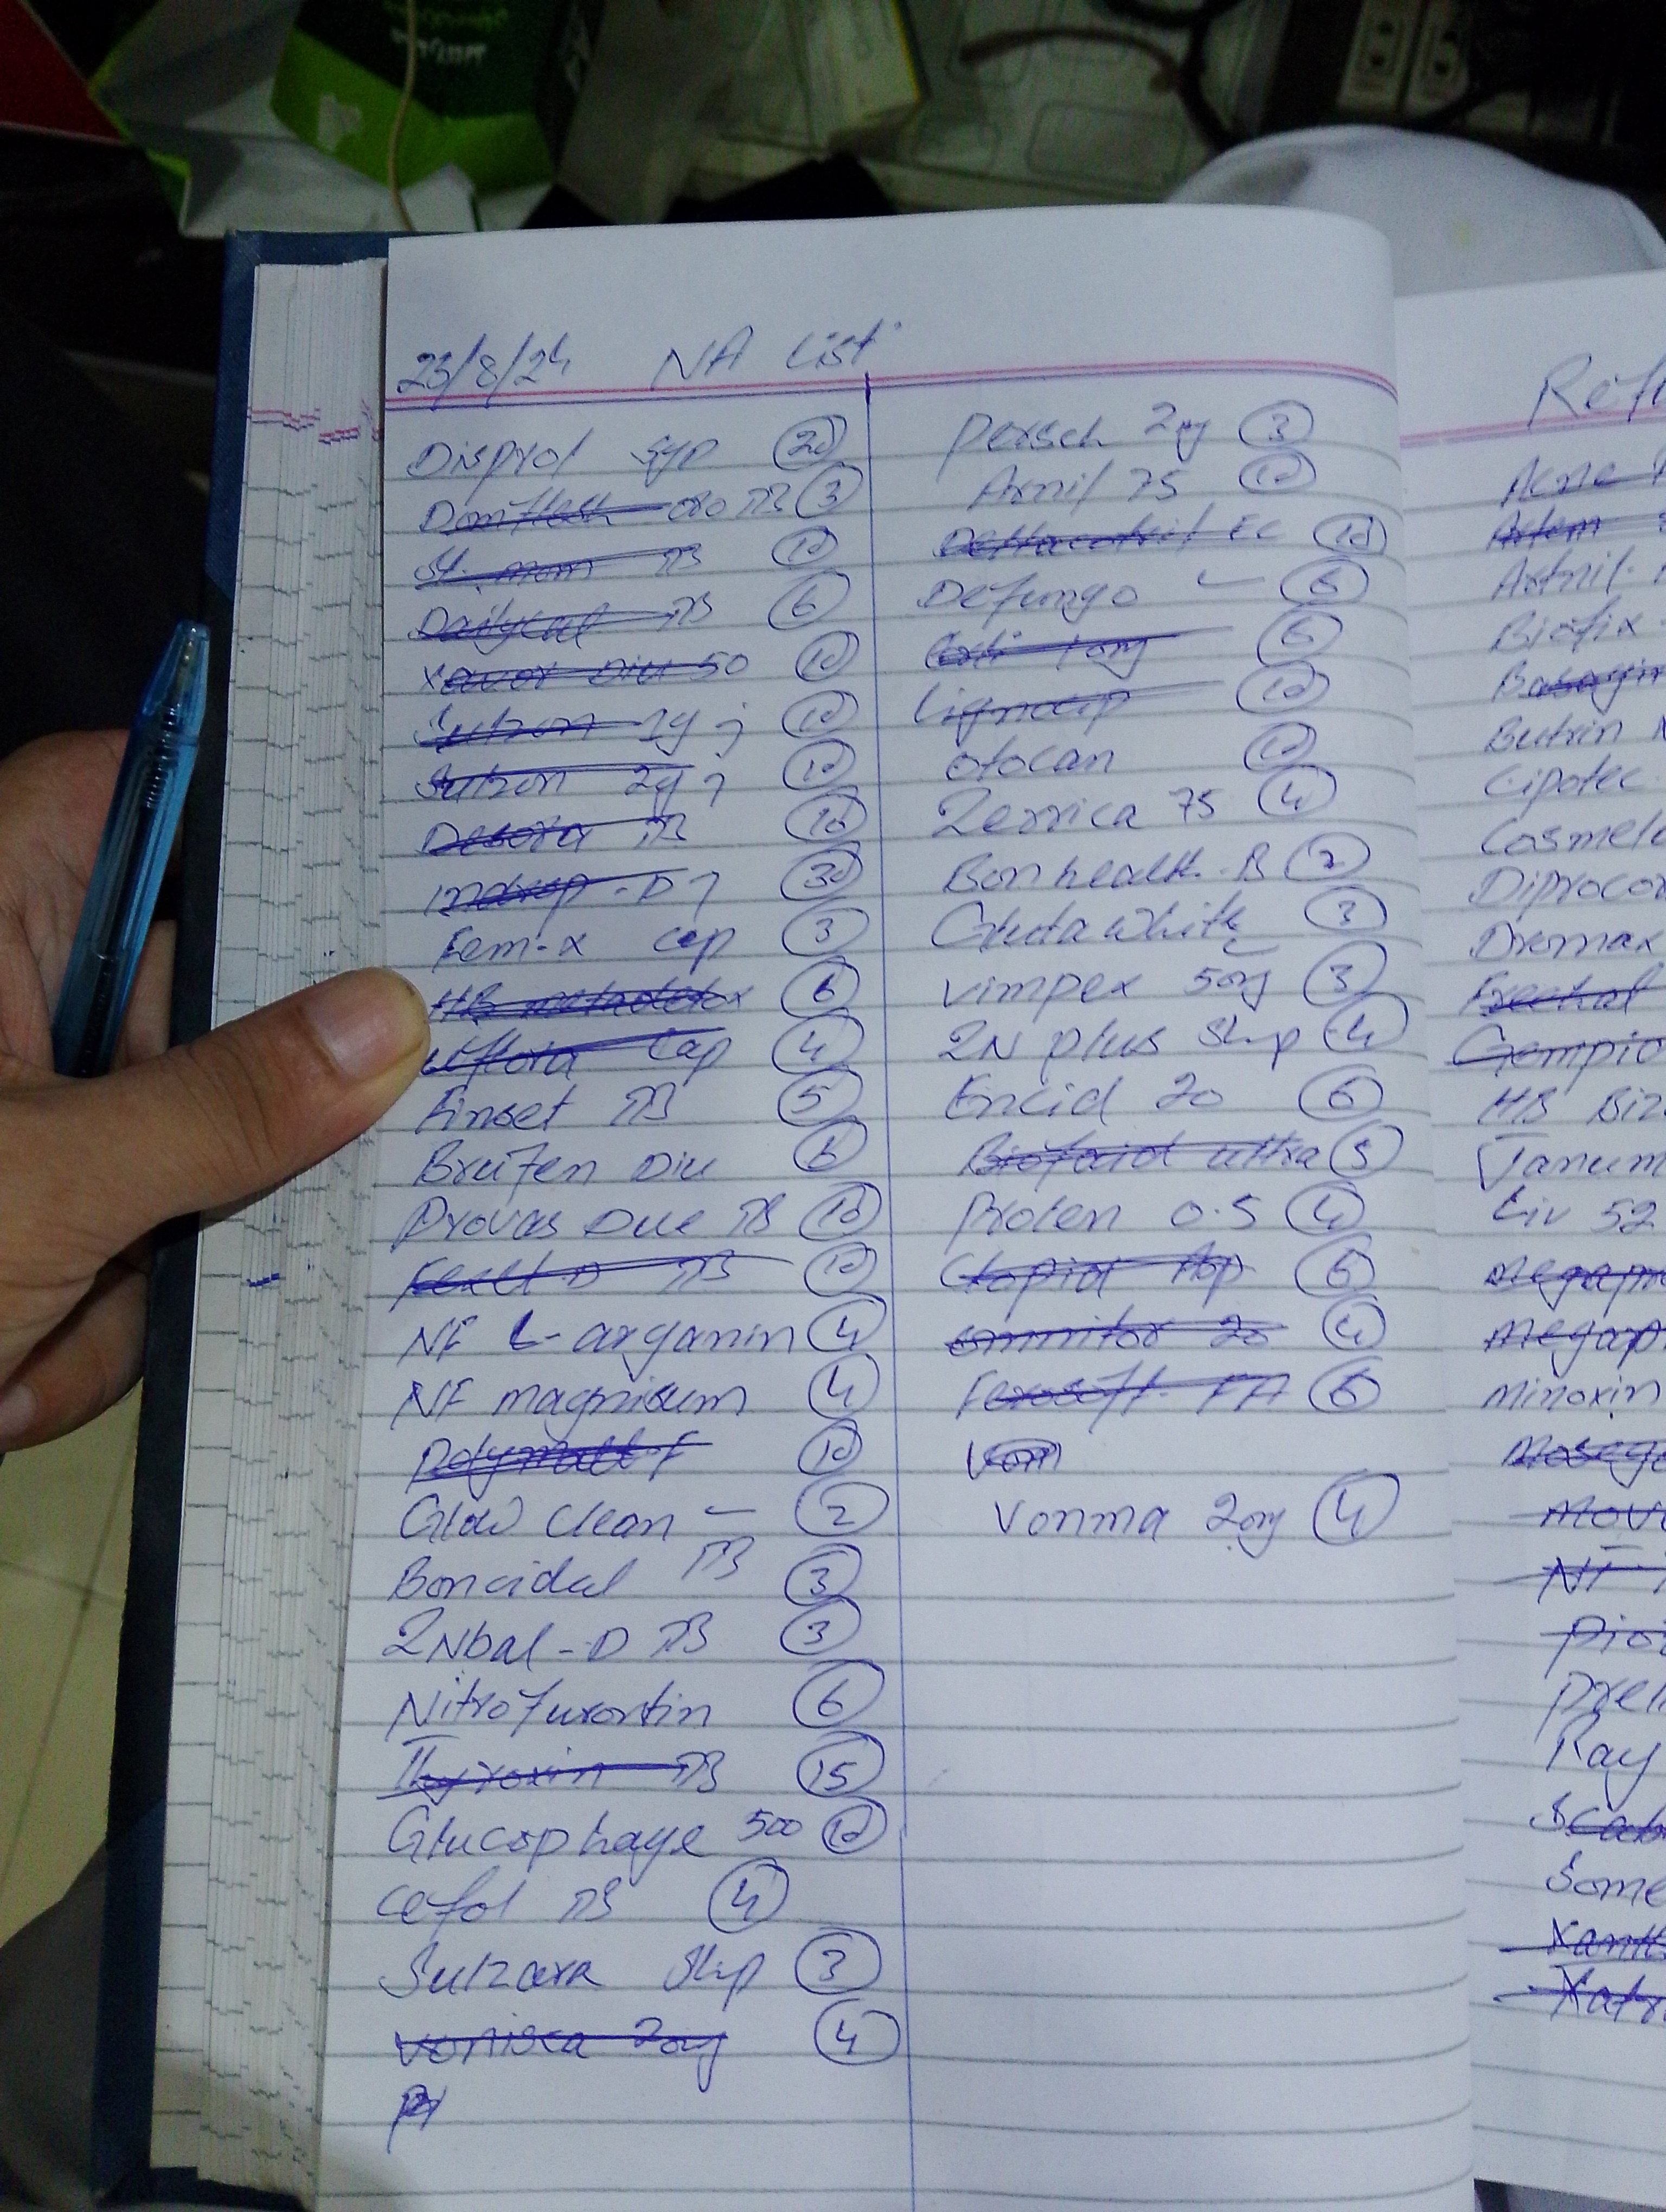 23/8/24 NA List
Disprol syp 20
Domflash oro TB 3
St. Mom TB 10
Dailycal TB 6
Xavor Diu 50 10
Sulzon 1g j 10
Sulzon 2g j 10
Desora TB 10
Indrop-D j 30
Fem-x cap 3
HB metadetox 6
Uflora Cap 4
Finset TB 5
Brufen Diu 6
Provas Due TB 10
Fexet D TB 10
NF L-arganin 4
NF magnisum 4
Polymalt-F 10
Glow clean - 2
Boncidal TB 3
2Nbal-D TB 3
Nitrofurontin 6
Thyroxin TB 15
Glucophage 500 10
Cefol TB 4
Sulzera Shp 3
Voniska 20mg 4
Persch 2mg 3
Arnil 75 10
Deltacortril EC 10
Defungo 6
Lignocip 10
Otocan 10
Zerrica 75 4
Bonhealth-B 2
Gluta white 3
Vimpex 50mg 3
2N plus Shp 4
Encid 20 6
Biofoid ultra 5
Prolen 0.5 4
Clopid Asp 6
20 4
Ferosoft FA 6
Von
Vonma 20mg 4
Acne
Artem
Artnil
Biofix
Basagin
Butrin
Cipotec
Cosmele
Diprocor
Dremax
Freehal
Gempi
HB
Janum
Liv 52
Megap
Megap
Minoxin
Mov
NF
Ray
Scab
Some